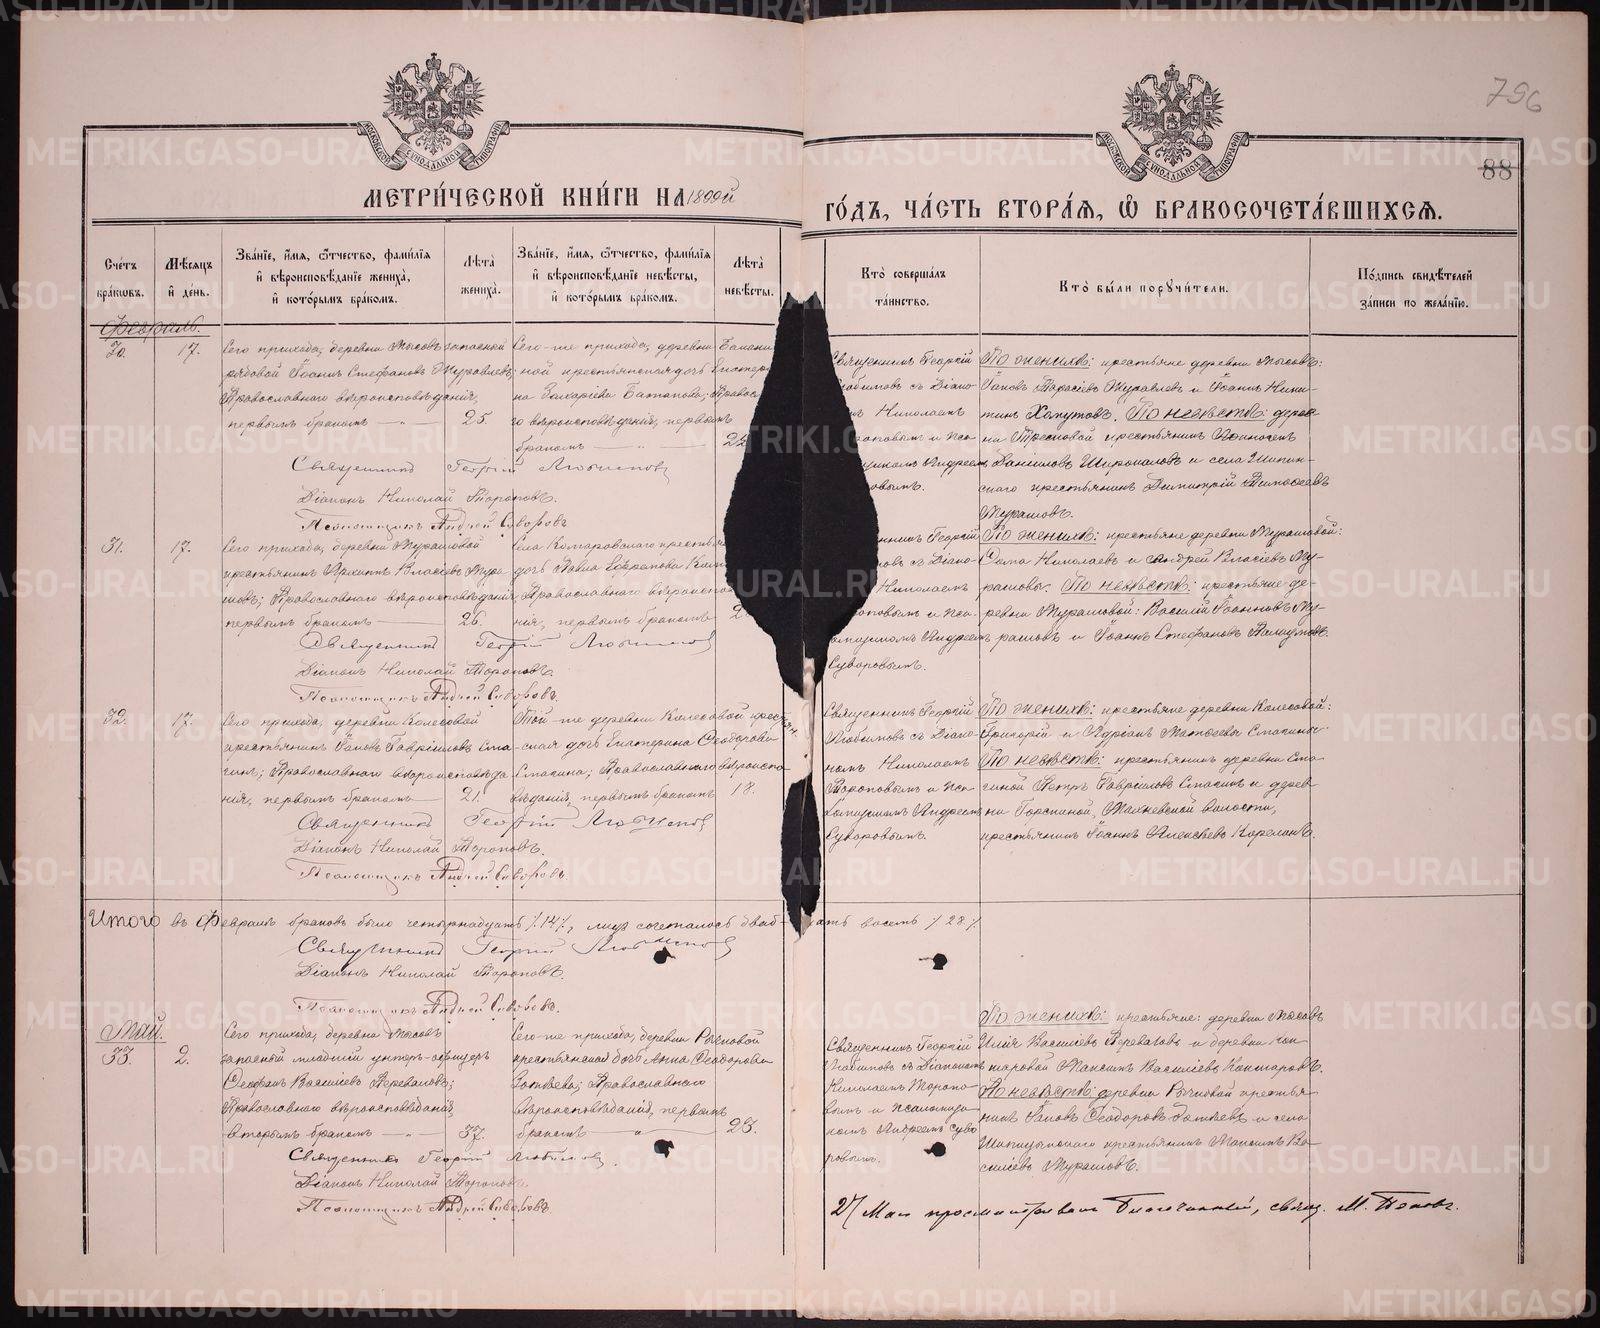 796
88
МЕТРИ́ЧЕСКОЙ КНИ́ГИ НА 1899й ГО́ДЪ, ЧА́СТЬ ВТОРА́Я, Ѡ БРАКОСОЧЕТА́ВШИХСЯ.
Сче́тъ бра́кѡвъ.
Мѣ́сяцъ и́ де́нь.
Зва́ніе, и́мя, ѻ҆́тчество, фами́лія и́ вѣроисповѣ́даніе жениха̀, и́ кото́рымъ бра́комъ.
Лѣ́та жениха̀.
Зва́ніе, и́мя, ѻ҆́тчество, фами́лія и́ вѣроисповѣ́даніе невѣ́сты, и́ кото́рымъ бра́комъ.
Лѣ́та невѣ́сты.
Кто̀ соверша́лъ та́инство.
Кто̀ бы́ли порꙋчи́тели.
По́дпись свидѣ́телей за́писи по жела́нію.
Февраль.
30.
17.
Сего прихода, деревни Мысовъ запасной
рядовой Іоаннъ Стефановъ Журавлевъ;
Православнаго вѣроисповѣданія,
первымъ бракомъ
25.
Сего-же прихода, деревни
ной крестьянская дочь
на Захаріева
го вѣроисповѣданія, первымъ
бракомъ
Священникъ Георгій
съ Діако-
Николаемъ
и пса-
Андреем
По женихѣ: крестьяне деревни Мысовъ:
Іаковъ Тарасіевъ Журавлевъ и Іоаннъ Ники-
тинъ По невѣстѣ: дерев-
крестьянинъ
Даніиловъ Широкаловъ и села
скаго крестьянинъ Димитрій Тимоѳеевъ
Мурашовъ.
Священникъ Георгій Любимовъ
Діаконъ Николай Тороповъ.
Псаломщикъ Андрей Суворовъ
31.
17.
Сего прихода, деревни Мурашовой
крестьянинъ Архиппъ Власіевъ Мура-
шовъ; Православнаго вѣроисповѣданія,
первымъ бракомъ
26.
Села Комаровскаго крестья
дочь Павла
Православнаго вѣроиспо
нія, первымъ бракомъ
Георгій
съ Діако-
Николаемъ
и пса-
ломщикомъ Андреем
Суворовымъ.
По женихѣ: крестьяне деревни Мурашовой:
Сима Николаевъ и Андрей Власіевъ Му-
рашовы. По невѣстѣ: крестьяне де-
ревни Мурашовой: Василій Іоанновъ Му-
рашовъ и Іоаннъ Стефановъ
Священникъ Георгій Любимовъ
Діаконъ Николай Тороповъ.
Псаломщикъ Андрей Суворовъ.
32.
17.
Сего прихода, деревни Колесовой
крестьянинъ Іаковъ Гавріиловъ Спа-
гинъ; Православнаго вѣроисповѣда-
нія, первымъ бракомъ
21.
Той-же деревни Колесовой крестьян-
ская дочь Екатерина Ѳеодорова
Спагина; Православнаго вѣроиспо-
вѣданія, первымъ бракомъ
18.
Священникъ Георгій
Любимовъ съ Діако-
номъ Николаемъ
Тороповымъ и пса-
ломщикомъ Андреем
Суворовымъ.
По женихѣ: крестьяне деревни Колесовой:
Григорій и Адріанъ Матѳеевы Спагины.
По невѣстѣ: крестьянинъ деревни Спа-
гиной Петръ Гавріиловъ Спагинъ и дерев-
ни Горскиной, Махневской волости,
крестьянинъ Іоаннъ Алексѣевъ Корелинъ.
Священникъ Георгій Любимовъ
Діаконъ Николай Тороповъ.
Псаломщикъ Андрей Суворовъ.
Итого въ Февралѣ браковъ было четырнадцать /14/, лицъ сочеталось двадцать восемь /28/
Священникъ Георгій Любимовъ
Діаконъ Николай Тороповъ.
Псаломщикъ Андрей Суворовъ.
Май.
33.
2.
Сего прихода, деревни Мысовъ
запасной младшій унтеръ-офицеръ
Ѳеофанъ Василіевъ Переваловъ;
Православнаго вѣроисповѣданія,
вторымъ бракомъ
37.
Сего-же прихода, деревни Рычковой
крестьянская дочь Анна Ѳеодорова
Православнаго
вѣроисповѣданія, первымъ
бракомъ
23.
Священникъ Георгій
Любимовъ съ Діакономъ
Николаемъ Торопо-
вымъ и псаломщи-
комъ Андреемъ Суво-
ровымъ.
По женихѣ: крестьяне: деревни Мысовъ
Илія Василіевъ Переваловъ и деревни Кок-
шаровой Максимъ Василіевъ Кокшаровъ.
По невѣстѣ: деревни Рычковой крестья-
нинъ Іаковъ Ѳеодоровъ и села
крестьянинъ Максимъ Ва-
силіевъ Мурашовъ.
Священникъ Георгій Любимовъ.
Діаконъ Николай Тороповъ.
Псаломщикъ Андрей Суворовъ.
27 Мая просматривалъ Благочинный, свящ. М. Поповъ.
METRIKI.GASO-URAL.RU